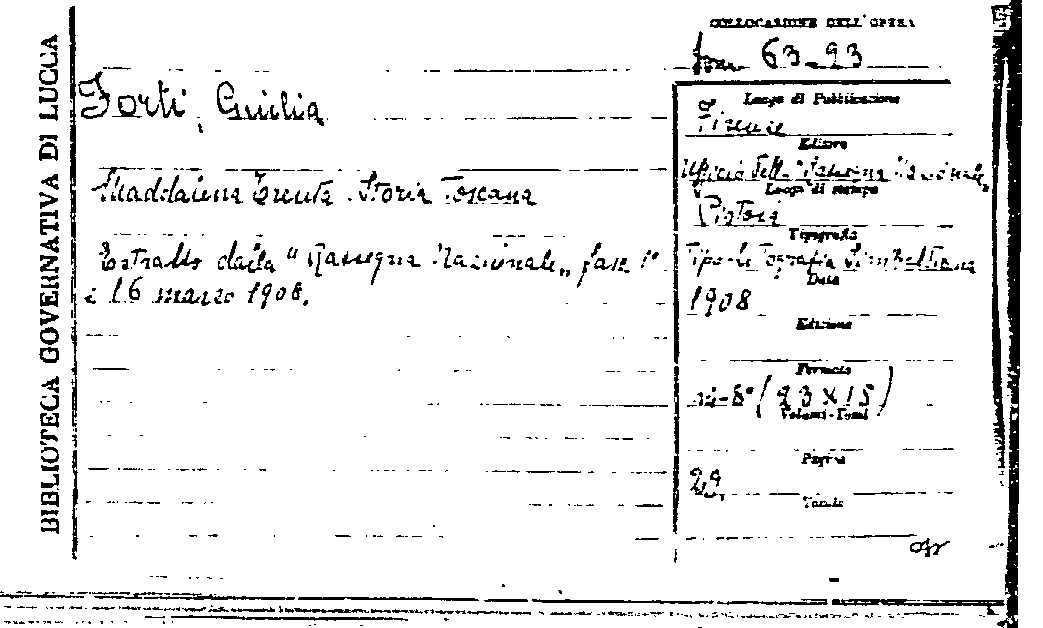 BIBLIOTECA GOVERNATIVA DI LUCCA
COLLOCAZIONE DELL'OPERA
63-93
Forti, Giulia
Luogo di Pubblicazione
Firenze
Editore
Maddalena Trenta. Storia Toscana
Ufficio della "Rassegna Nazionale"
Luogo di stampa
Pistoia
Tipografia
Estratto dalla "Rassegna Nazionale" fasc 1°
e 16 marzo 1908.
Tipo-Litografia Sinibuldiana
Data
1908
Edizione
Formato
in-8° (23 X 15)
Volumi-Tomi
Pagine
29.
Tavole